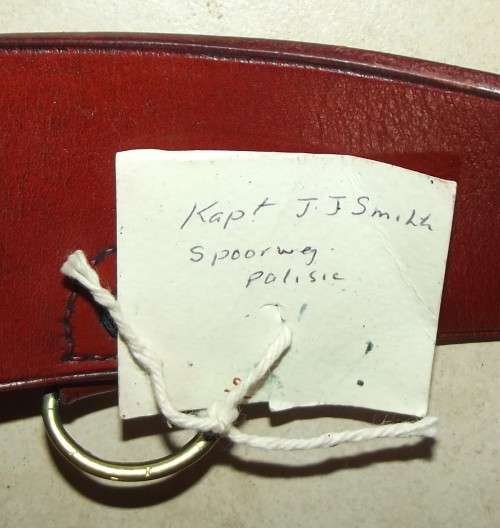 Kapt J.J Smith
Spoorweg.
Polisie